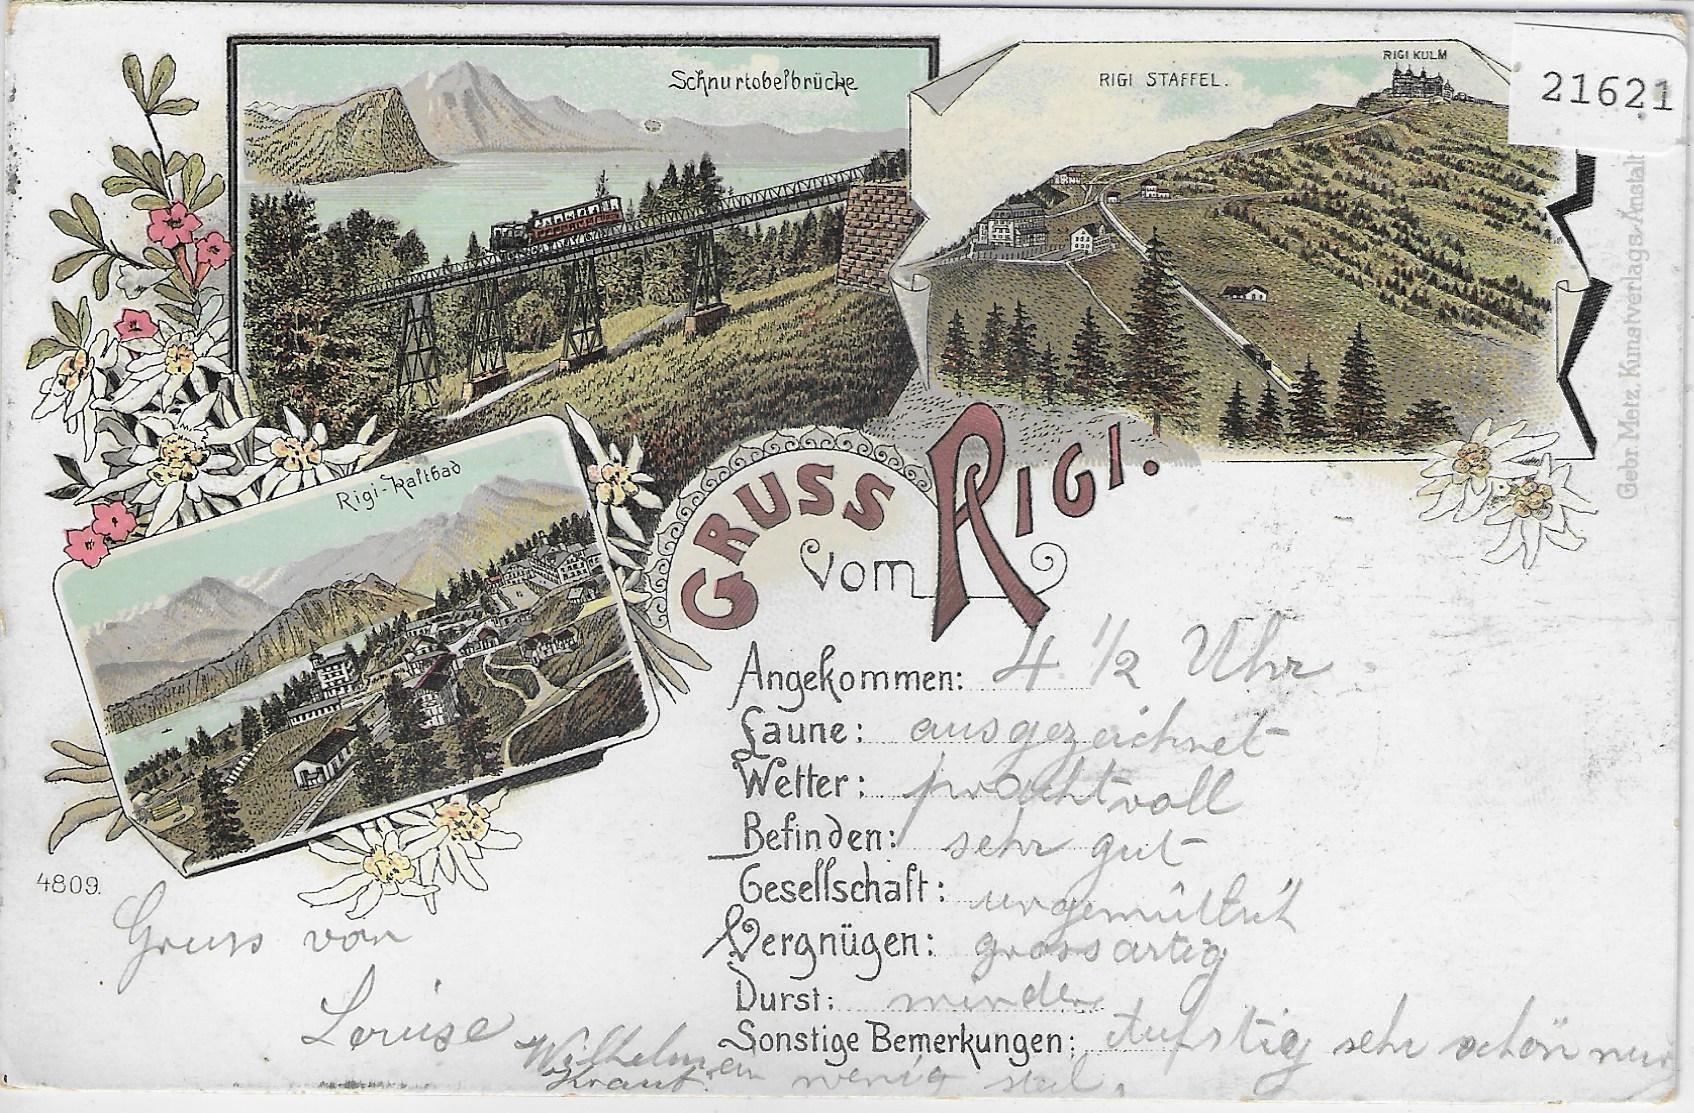 Schnurtobelbrücke
RIGI STAFFEL.
RIGI KULM
21621
Gebr. Metz. Kunstverlags-Anstalt
Rigi-Kaltbad
GRUSS
vom RIGI.
Angekommen: 4 1/2 Uhr
Laune: ausgezeichnet
Wetter: prachtvoll
Befinden: sehr gut
Gesellschaft: urgemütlich
Vergnügen: grossartig
Durst: minder
Sonstige Bemerkungen: Aufstieg sehr schön nur
ein wenig steil.
4809.
Gruss von
Louise
Wilhelm
Kraut.